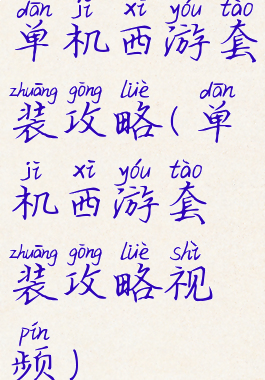 dān jī xī yóu tào
单机西游套
zhuāng gōng lüè dān
装攻略(单
jī xī yóu tào
机西游套
zhuāng gōng lüè shì
装攻略视
pín
频)